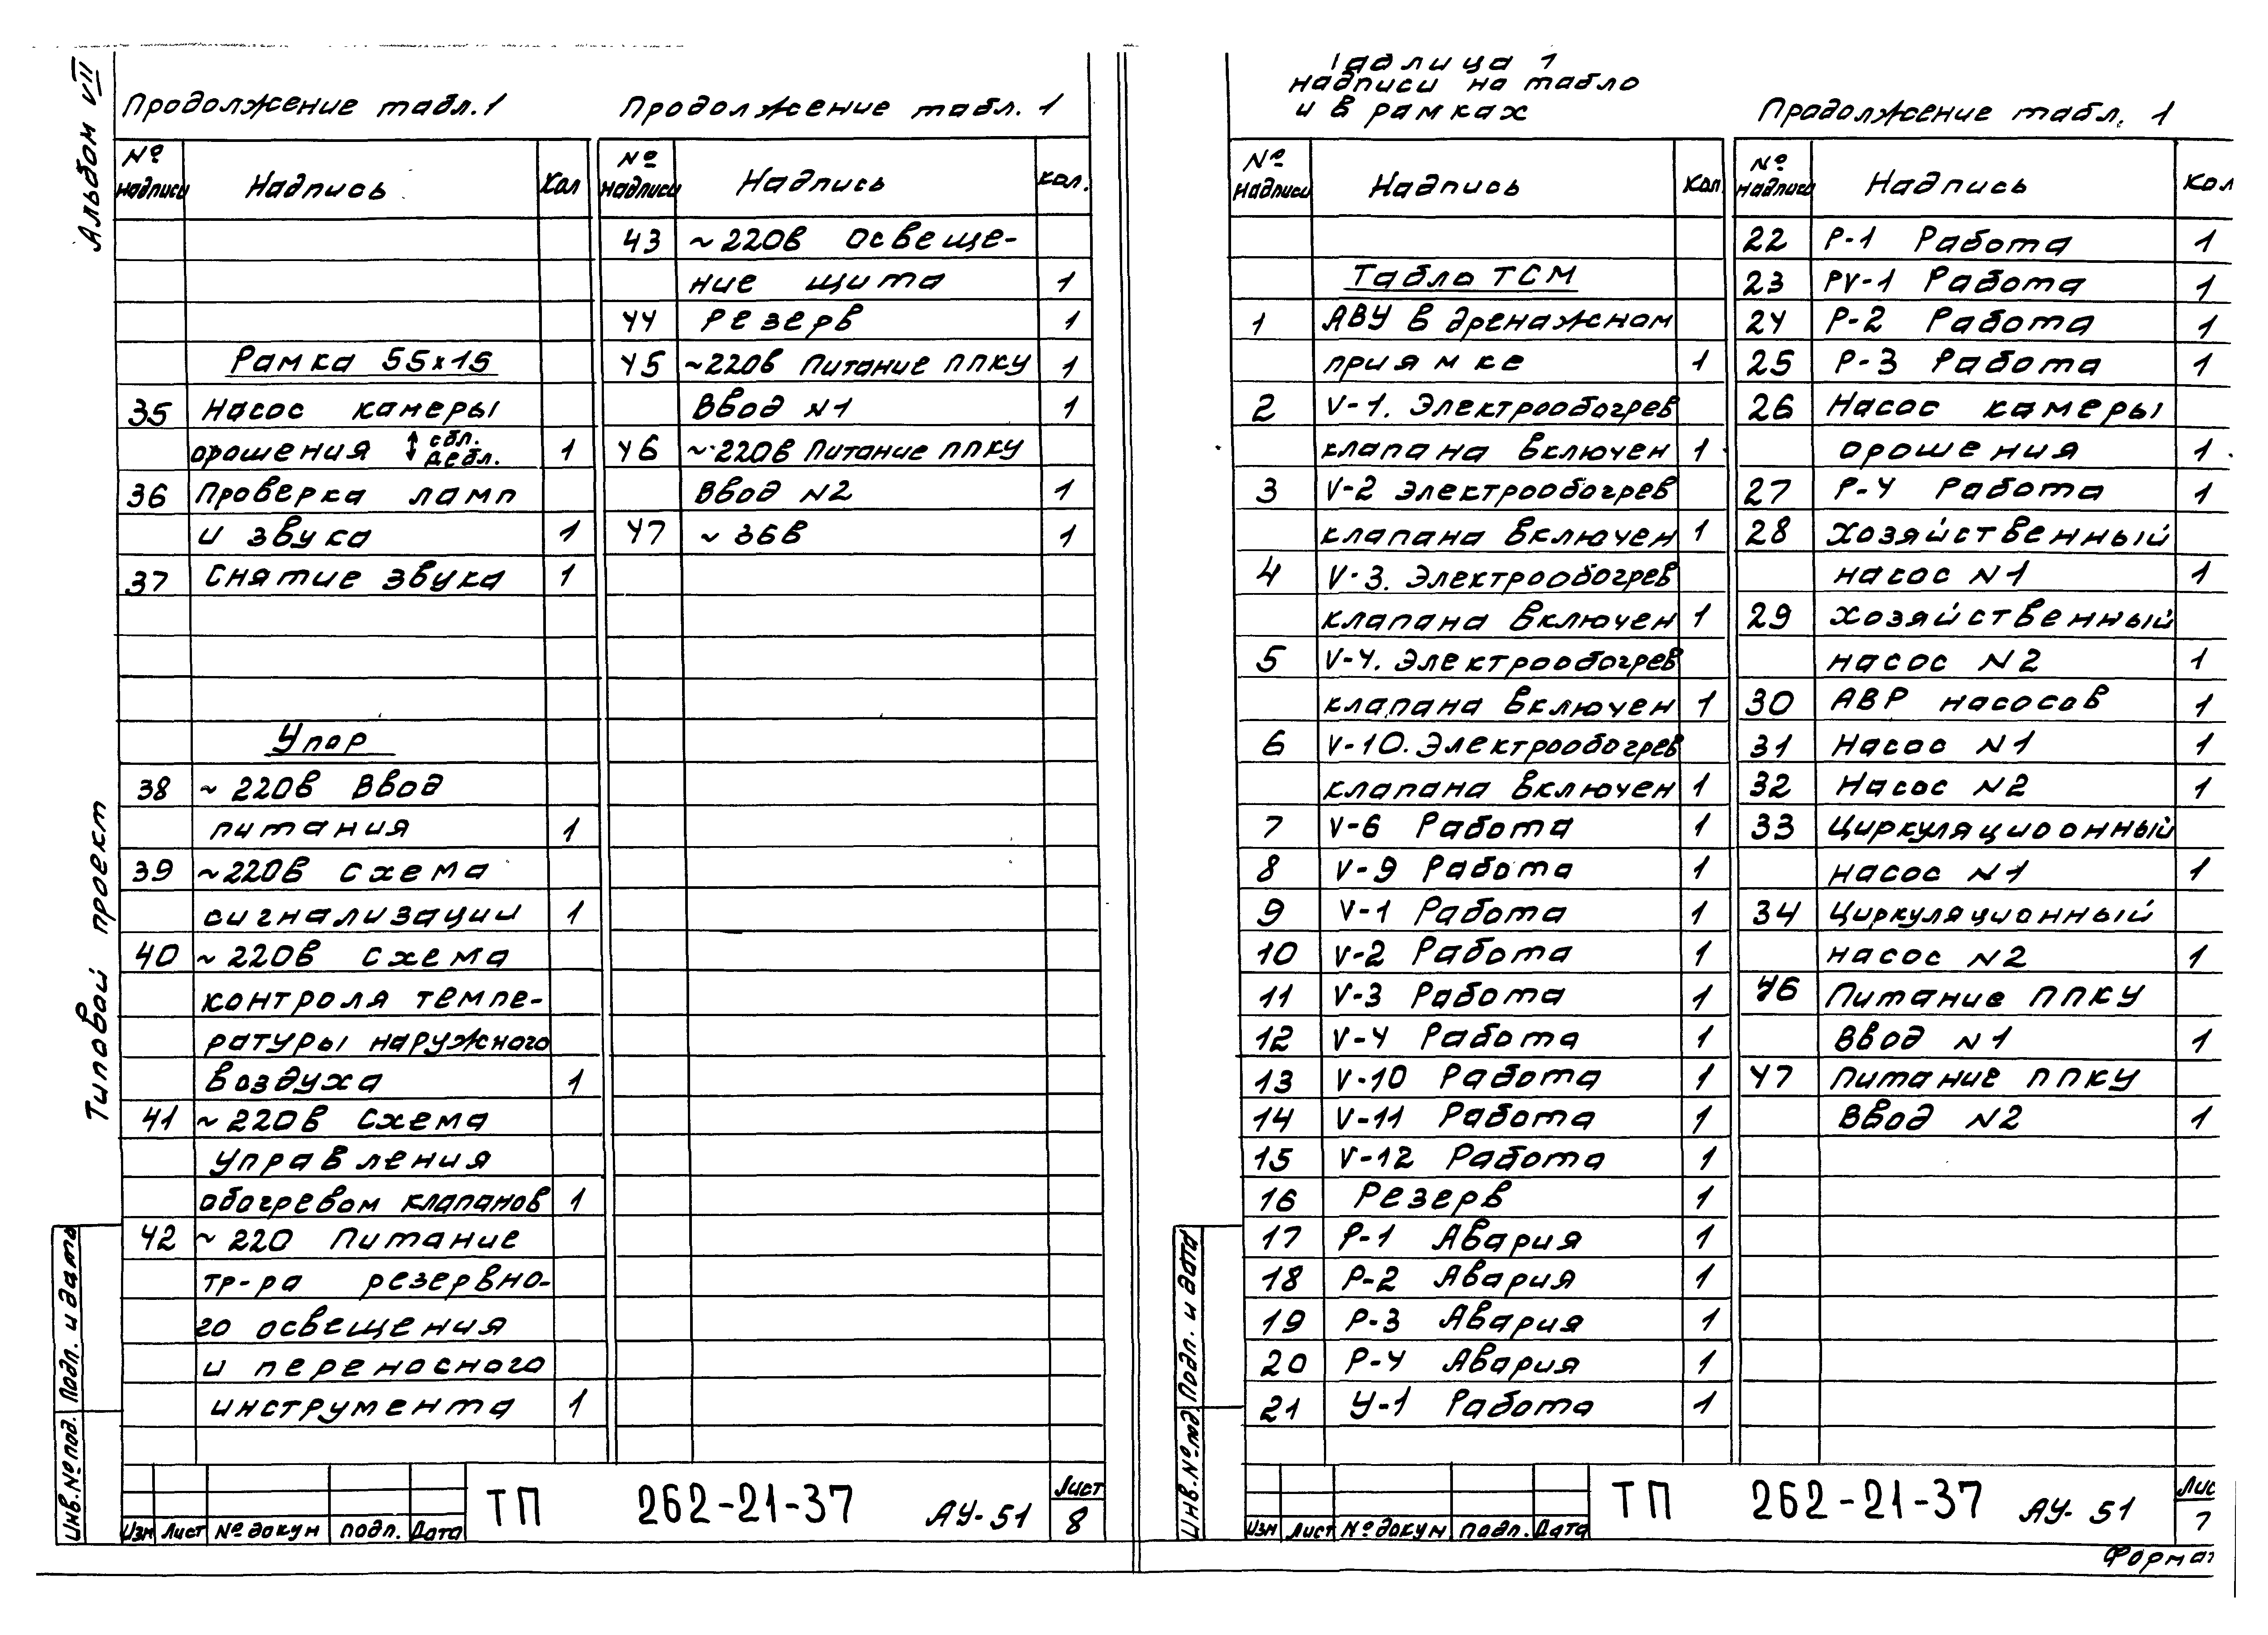 Альбом VII
Типовой проект
Продолжение табл. 1
№ надписи Надпись Кол
Рамка 55х15
35 Насос камеры
орошения ↕ сбл. дебл. 1
36 Проверка ламп
и звука 1
37 Снятие звука 1
Упор
38 ~ 220в Ввод
питания 1
39 ~220в схема
сигнализации 1
40 ~ 220в схема
контроля темпе-
ратуры наружного
воздуха 1
41 ~ 220в Схема
управления
обогревом клапанов 1
42 ~ 220 Питание
тр-ра резервно-
го освещения
и переносного
инструмента 1
Продолжение табл. 1
№ надписи Надпись кол.
43 ~ 220в Освеще-
ние щита 1
44 Резерв 1
45 ~220в Питание ППКУ 1
Ввод N1 1
46 ~220в Питание ППКУ
Ввод N2 1
47 ~ 36в 1
Инв. № под. Подп. и дата
Изм Лист № докум подп. Дата
ТП 262-21-37 АУ-51
Лист
8
Таблица 1
надписи на табло
и в рамках
№ надписи Надпись Кол.
Табло ТСМ
1 АВУ в дренажном
приямке 1
2 V-1. Электрообогрев
клапана включен 1
3 V-2 Электрообогрев
клапана включен 1
4 V-3. Электрообогрев
клапана включен 1
5 V-4. Электрообогрев
клапана включен 1
6 V-10. Электрообогрев
клапана включен 1
7 V-6 Работа 1
8 V-9 Работа 1
9 V-1 Работа 1
10 V-2 Работа 1
11 V-3 Работа 1
12 V-4 Работа 1
13 V-10 Работа 1
14 V-11 Работа 1
15 V-12 Работа 1
16 Резерв 1
17 Р-1 Авария 1
18 Р-2 Авария 1
19 Р-3 Авария 1
20 Р-4 Авария 1
21 У-1 Работа 1
Продолжение табл. 1
№ надписи Надпись кол
22 Р-1 Работа 1
23 РV-1 Работа 1
24 Р-2 Работа 1
25 Р-3 Работа 1
26 Насос камеры
орошения 1
27 Р-4 Работа 1
28 Хозяйственный
насос N1 1
29 Хозяйственный
насос N2 1
30 АВР насосов 1
31 Насос N1 1
32 Насос N2 1
33 Циркуляциоонный
насос N1 1
34 Циркуляционный
насос N2 1
46 Питание ППКУ
Ввод N1 1
47 Питание ППКУ
Ввод N2 1
Инв. № под. Подп. и дата
Изм Лист № докум подп. Дата
ТП 262-21-37 АУ-51
Лис
7
Формат